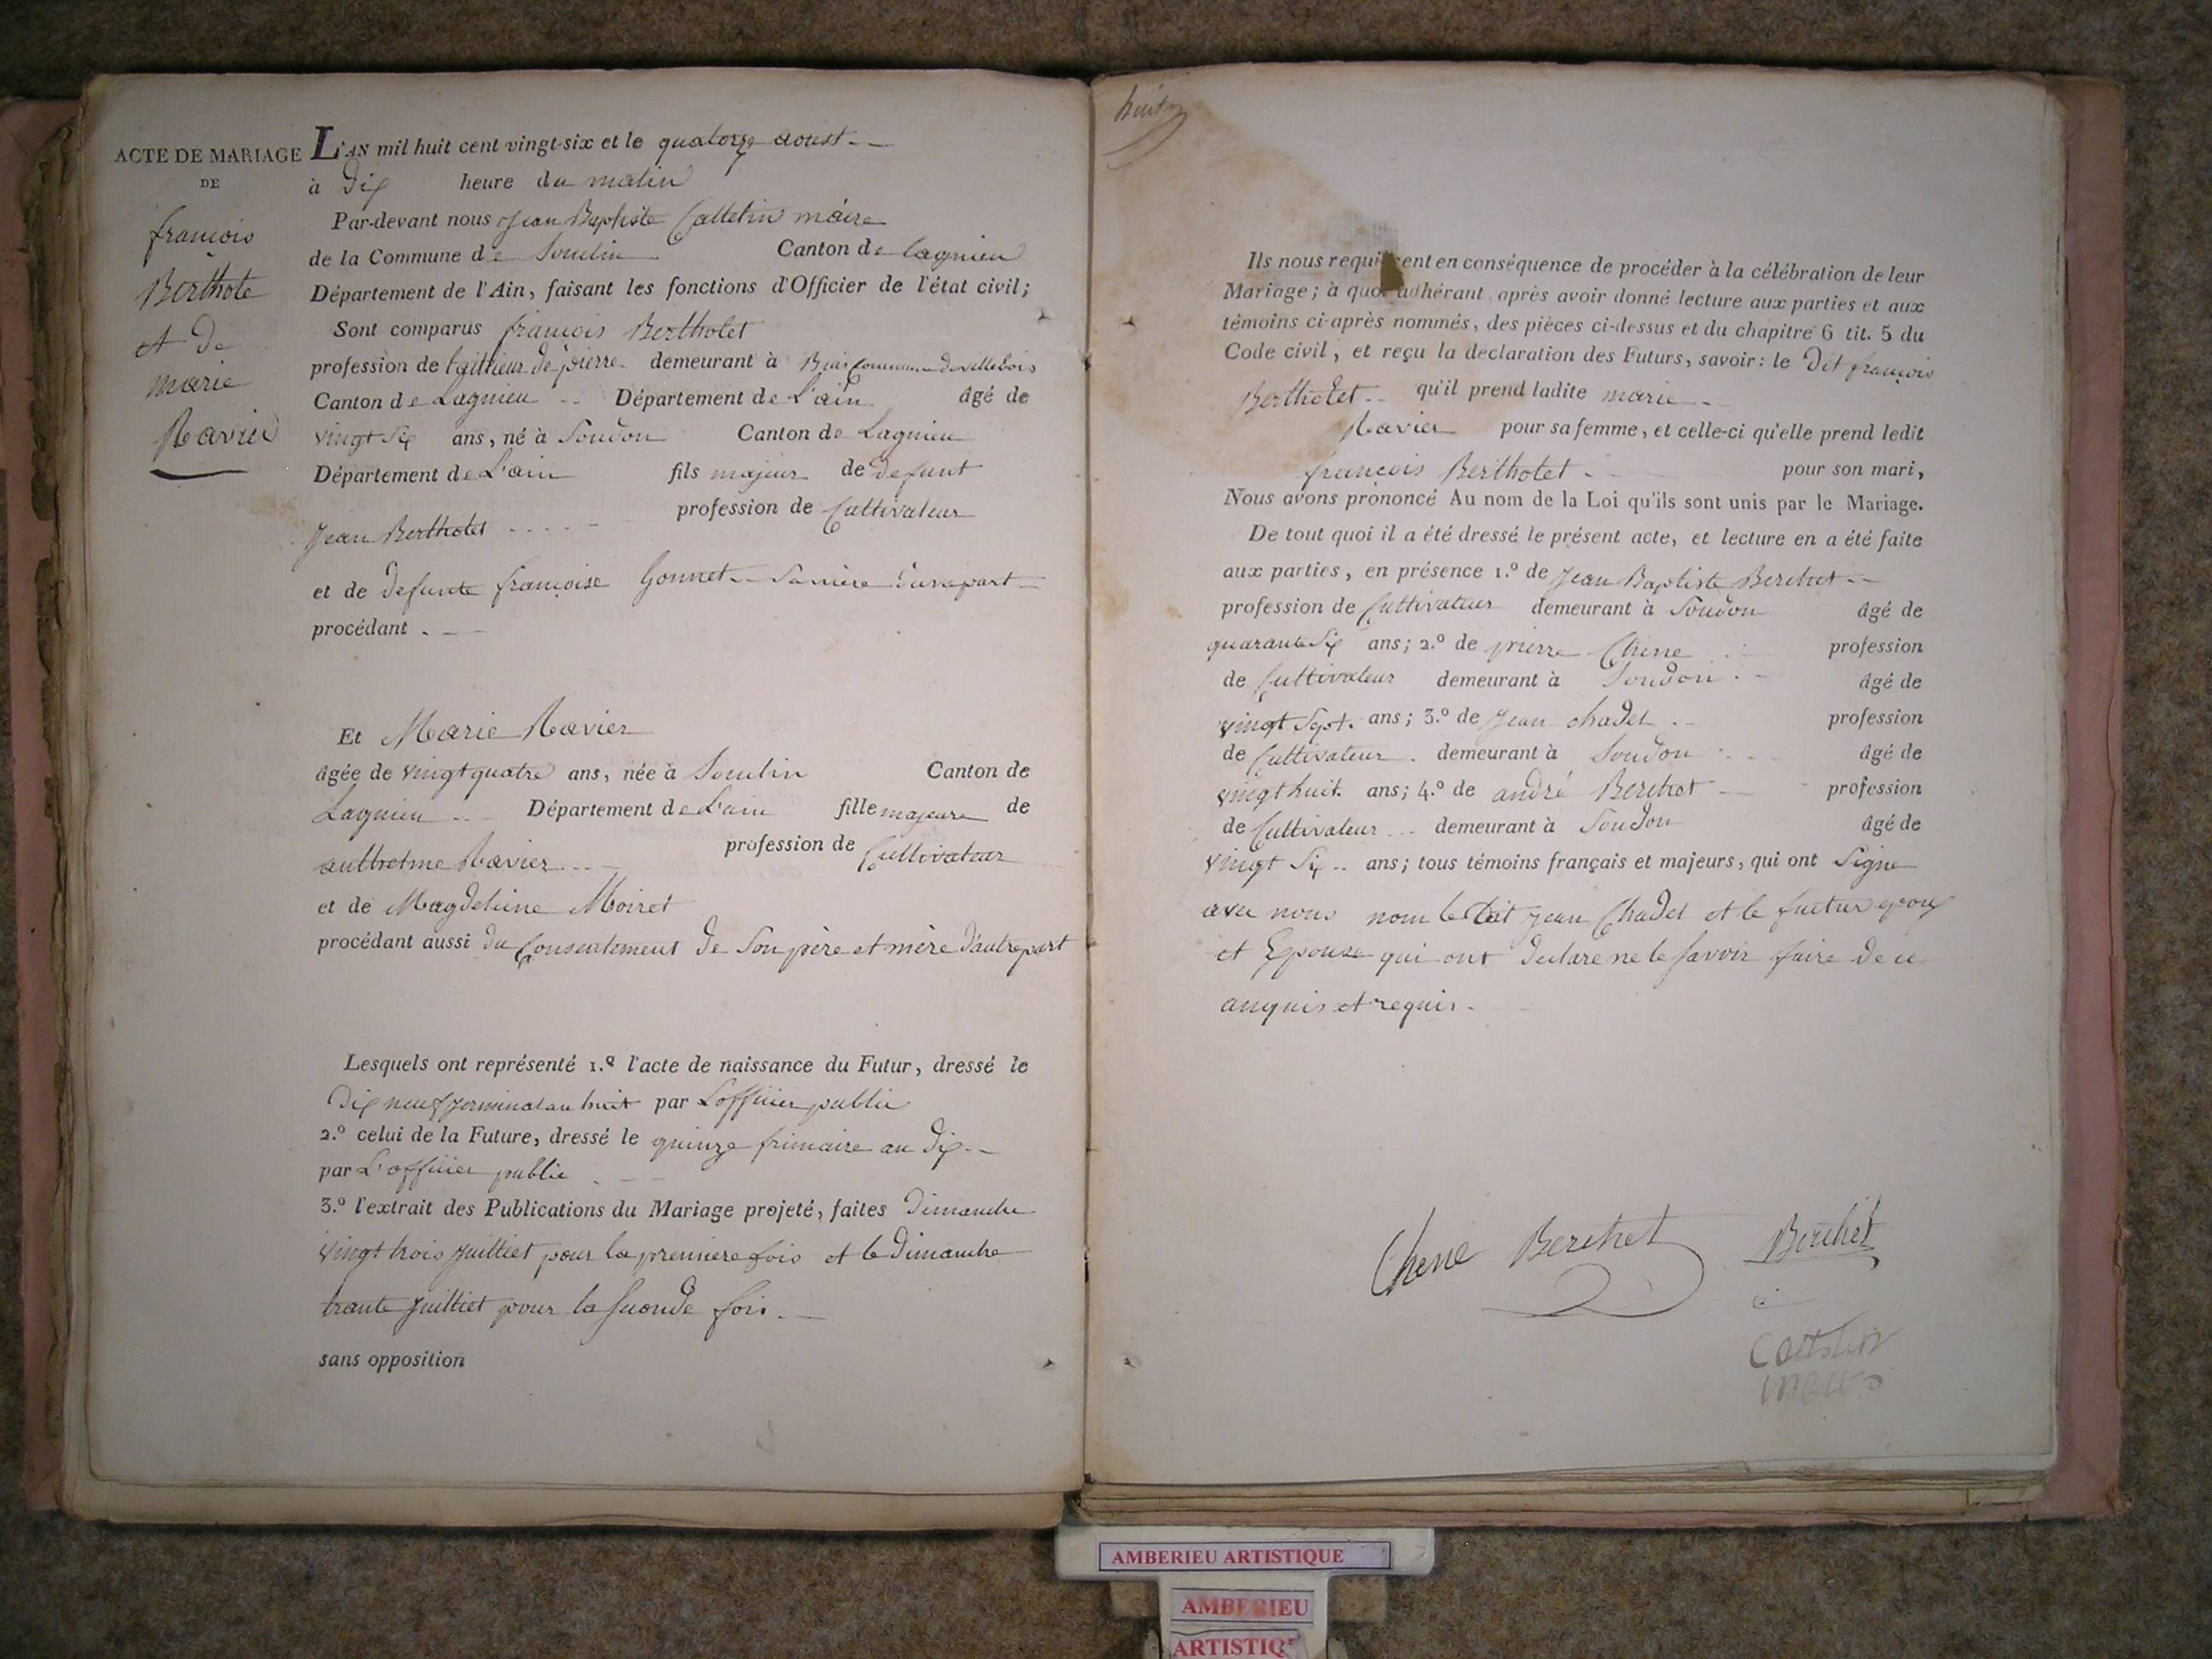 ACTE DE MARIAGE
DE
françois
Berthote
et de
marie
Ravier
L'AN mil huit cent vingt-six et le quatorze aoust
à dix heure du matin
Par-devant nous Jean Baptiste Cattelin maire
de la Commune de Soudin Canton de lagnieu
Département de l'Ain, faisant les fonctions d'Officier de l'état civil;
Sont comparus françois Bertholet
profession de tailleur de pierre demeurant à Commune de villebois
Canton de Lagnieu Département de L'ain âgé de
vingt six ans, né à Soudon Canton de Lagnieu
Département de L'ain fils majeur de defunt
Jean Bertholet profession de Cultivateur
et de defunte françoise Gonnet Sa mère d'une part
procédant
Et Marie Ravier
âgée de vingt quatre ans, née à Soudin Canton de
Lagnieu Département de L'ain fille majeure de
anthelme Ravier profession de Cultivateur
et de Magdeleine Moiret
procédant aussi du Consentement de Son père et mère d'autre part
Lesquels ont représenté 1.º l'acte de naissance du Futur, dressé le
dix neuf jerminal an huit par L'officier public
2.º celui de la Future, dressé le quinze frimaire an dix
par L'officier public
3.º l'extrait des Publications du Mariage projeté, faites dimanche
vingt trois juilliet pour la premiere fois et le dimanche
trante juilliet pour la seconde fois
sans opposition
huit
Ils nous requièrent en conséquence de procéder à la célébration de leur
Mariage; à quoi adhérant, après avoir donné lecture aux parties et aux
témoins ci-après nommés, des pièces ci-dessus et du chapitre 6 tit. 5 du
Code civil, et reçu la déclaration des Futurs, savoir: le dit françois
Bertholet qu'il prend ladite marie
Ravier pour sa femme, et celle-ci qu'elle prend ledit
françois Bertholet pour son mari,
Nous avons prononcé Au nom de la Loi qu'ils sont unis par le Mariage.
De tout quoi il a été dressé le présent acte, et lecture en a été faite
aux parties, en présence 1.º de Jean Baptiste Berchet
profession de Cultivateur demeurant à Soudon âgé de
quarante six ans; 2.º de pierre Chene profession
de Cultivateur demeurant à Soudon âgé de
vingt sept ans; 3.º de Jean chadel profession
de Cultivateur demeurant à Soudon âgé de
vingt huit ans; 4.º de andré Berchet profession
de Cultivateur demeurant à Soudon âgé de
vingt six ans; tous témoins français et majeurs, qui ont Signe
avec nous nom le dit Jean Chadel et le fuctur epoux
et Epouse qui ont declare ne le savoir faire de ce
anquis et requis
Chene Berchet Berchet
Cattelin
maire
AMBERIEU ARTISTIQUE
AMBERIEU
ARTISTIQ